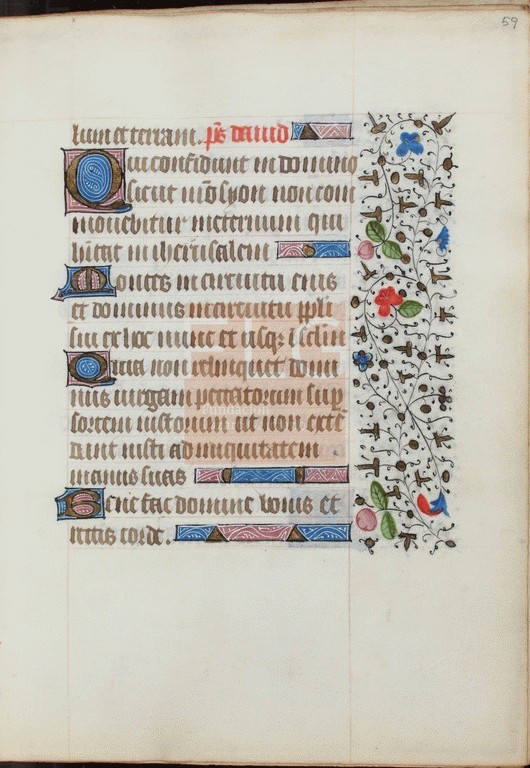 59
lum et terram. ps̄ dauid
Qui confidunt in domino
sicut mō syon non com
mouebitur in eternum qui
hītat in iherusalem
Montes in circuitu eius
et dominus in circuitu ppli
sui ex hoc nunc et usqz ī sclm
Quia non relinquet domi
nus uirgam peccatorum sup
sortem iustorum ut non extē
dant iusti ad iniquitatem
manus suas
Benefac domine bonis et
rectis corde.
fundación